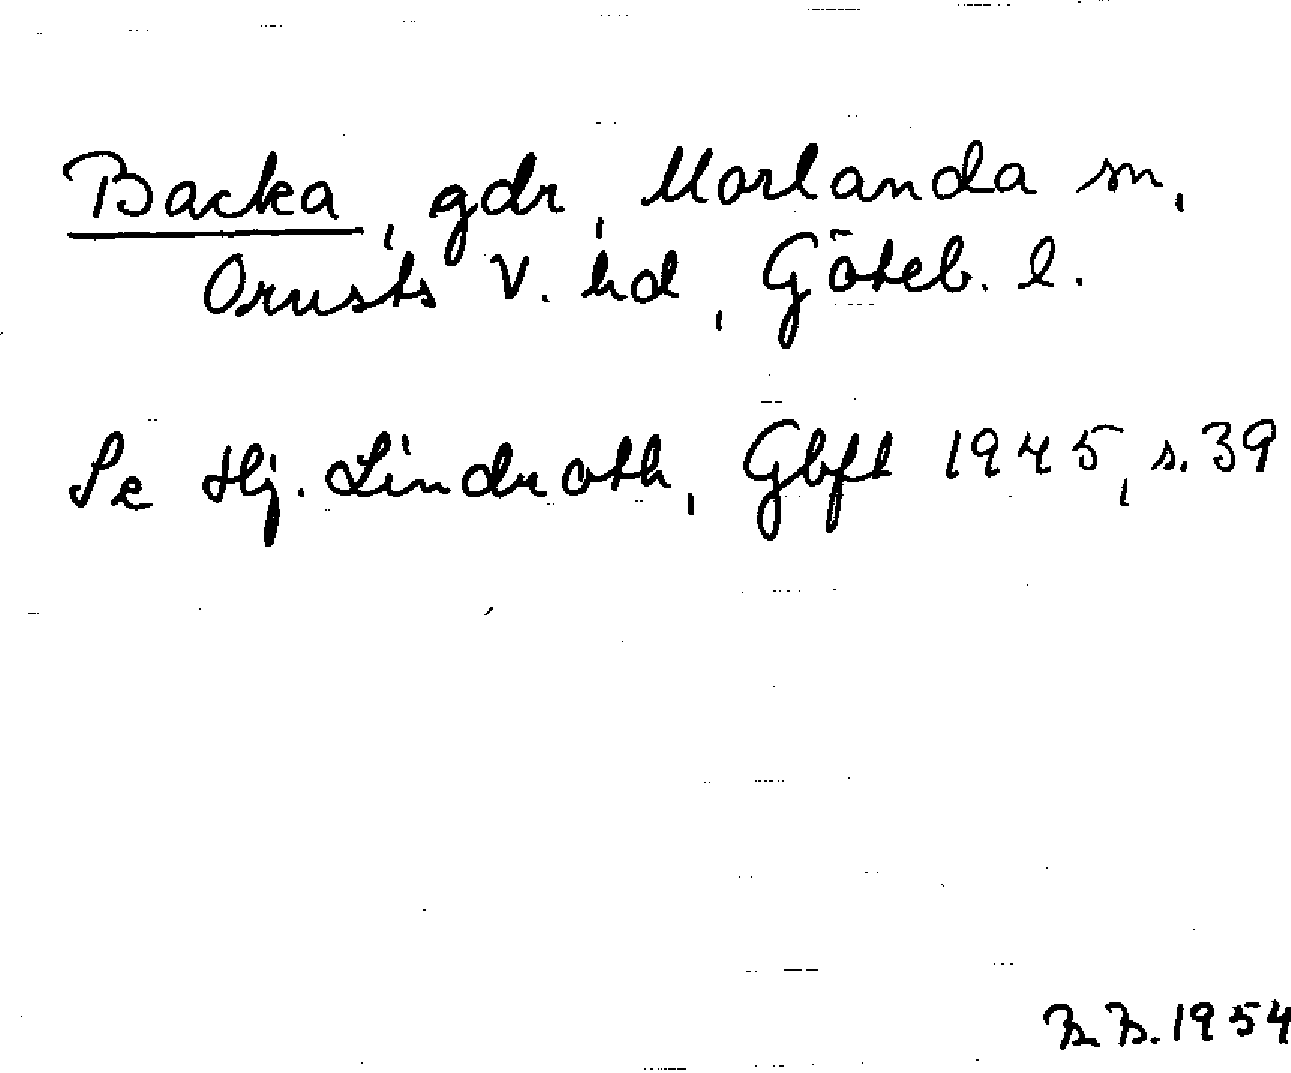 Backa, gdr, Morlanda sn,
Orusts V. hd, Göteb. l.
Se Hj. Lindroth, Gbft 1945, s. 39
B. B. 1954